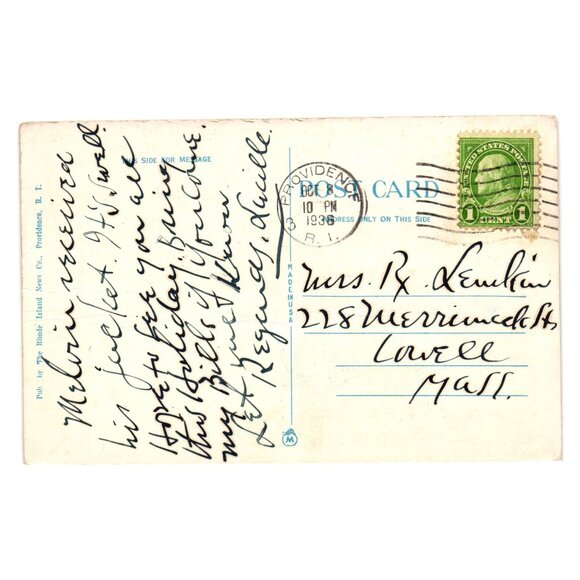 Pub by The Rhode Island News Co., Providence, R. I.
THIS SIDE FOR MESSAGE
Melvin received
his jacket. It's Swell.
Hope to see you all
this Holiday. Bring
my Bills if you come.
Let me know
Regards, Lucille.
POST CARD
ADDRESS ONLY ON THIS SIDE
MADE IN USA
M
PROVIDENCE
OCT 8
10 PM
1936
R. I.
UNITED STATES POSTAGE
1 CENT 1
Mrs. Lemkin
228 Merrimack St
Lowell
Mass.